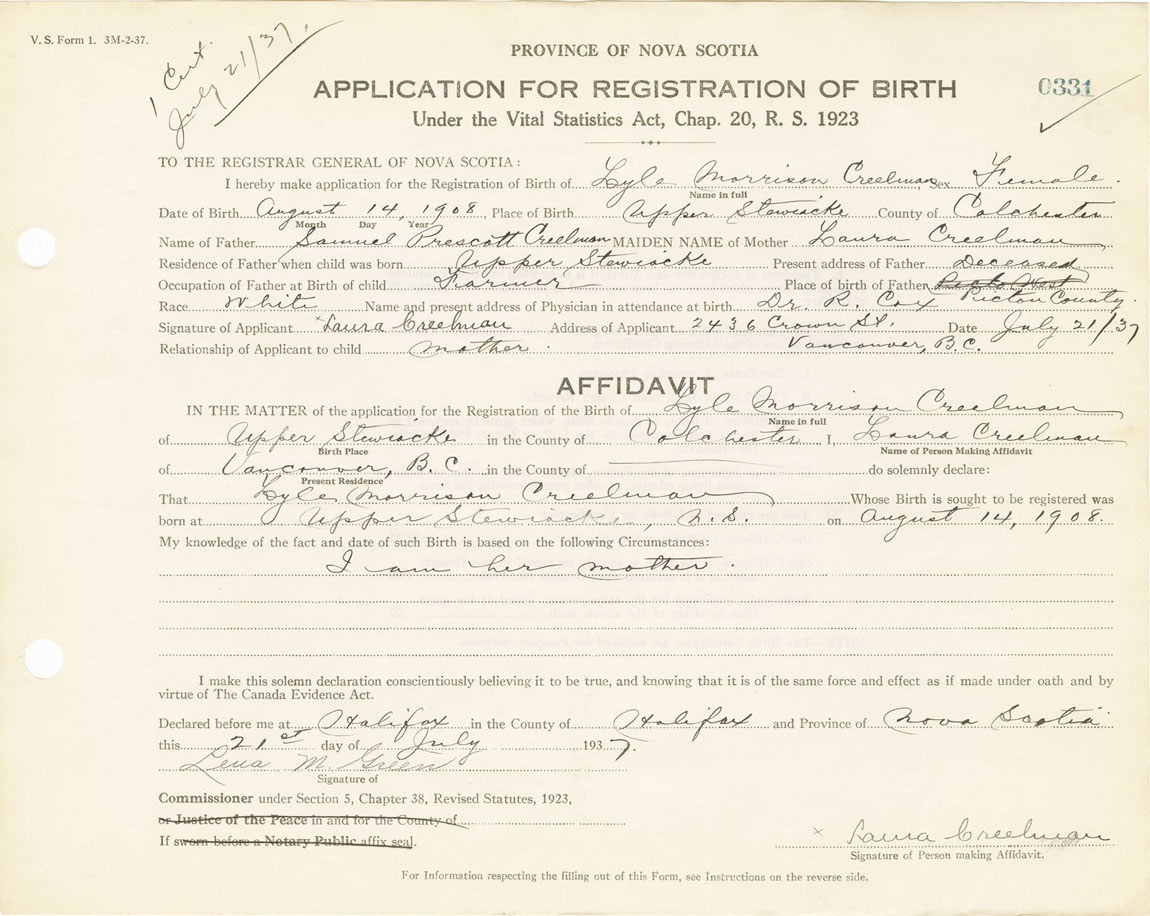 V. S. Form 1. 3M-2-37.
1 Cert.
July 21/37.
PROVINCE OF NOVA SCOTIA
APPLICATION FOR REGISTRATION OF BIRTH
0331
Under the Vital Statistics Act, Chap. 20, R. S. 1923
TO THE REGISTRAR GENERAL OF NOVA SCOTIA:
I hereby make application for the Registration of Birth of Lyle Morrison Creelman Sex Female.
Name in full
Date of Birth August 14, 1908, Place of Birth Upper Stewiacke County of Colchester
Month Day Year
Name of Father Samuel Prescott Creelman MAIDEN NAME of Mother Laura Creelman
Residence of Father when child was born Upper Stewiacke Present address of Father Deceased
Occupation of Father at Birth of child Farmer Place of birth of Father
Race White Name and present address of Physician in attendance at birth Dr. R. Cox Pictou County.
Signature of Applicant x Laura Creelman Address of Applicant 2436 Crown St. Date July 21/37
Relationship of Applicant to child mother. Vancouver, B.C.
AFFIDAVIT
IN THE MATTER of the application for the Registration of the Birth of Lyle Morrison Creelman
Name in full
of Upper Stewiacke in the County of Colchester I, Laura Creelman
Birth Place Name of Person Making Affidavit
of Vancouver, B.C. in the County of do solemnly declare:
Present Residence
That Lyle Morrison Creelman Whose Birth is sought to be registered was
born at Upper Stewiacke, N.S. on August 14, 1908.
My knowledge of the fact and date of such Birth is based on the following Circumstances:
I am her mother.
I make this solemn declaration conscientiously believing it to be true, and knowing that it is of the same force and effect as if made under oath and by
virtue of The Canada Evidence Act.
Declared before me at Halifax in the County of Halifax and Province of Nova Scotia
this 21st day of July 1937.
Lena M. Green
Signature of
Commissioner under Section 5, Chapter 38, Revised Statutes, 1923,
or Justice of the Peace in and for the County of
If sworn before a Notary Public affix seal.
x Laura Creelman
Signature of Person making Affidavit.
For Information respecting the filling out of this Form, see Instructions on the reverse side.